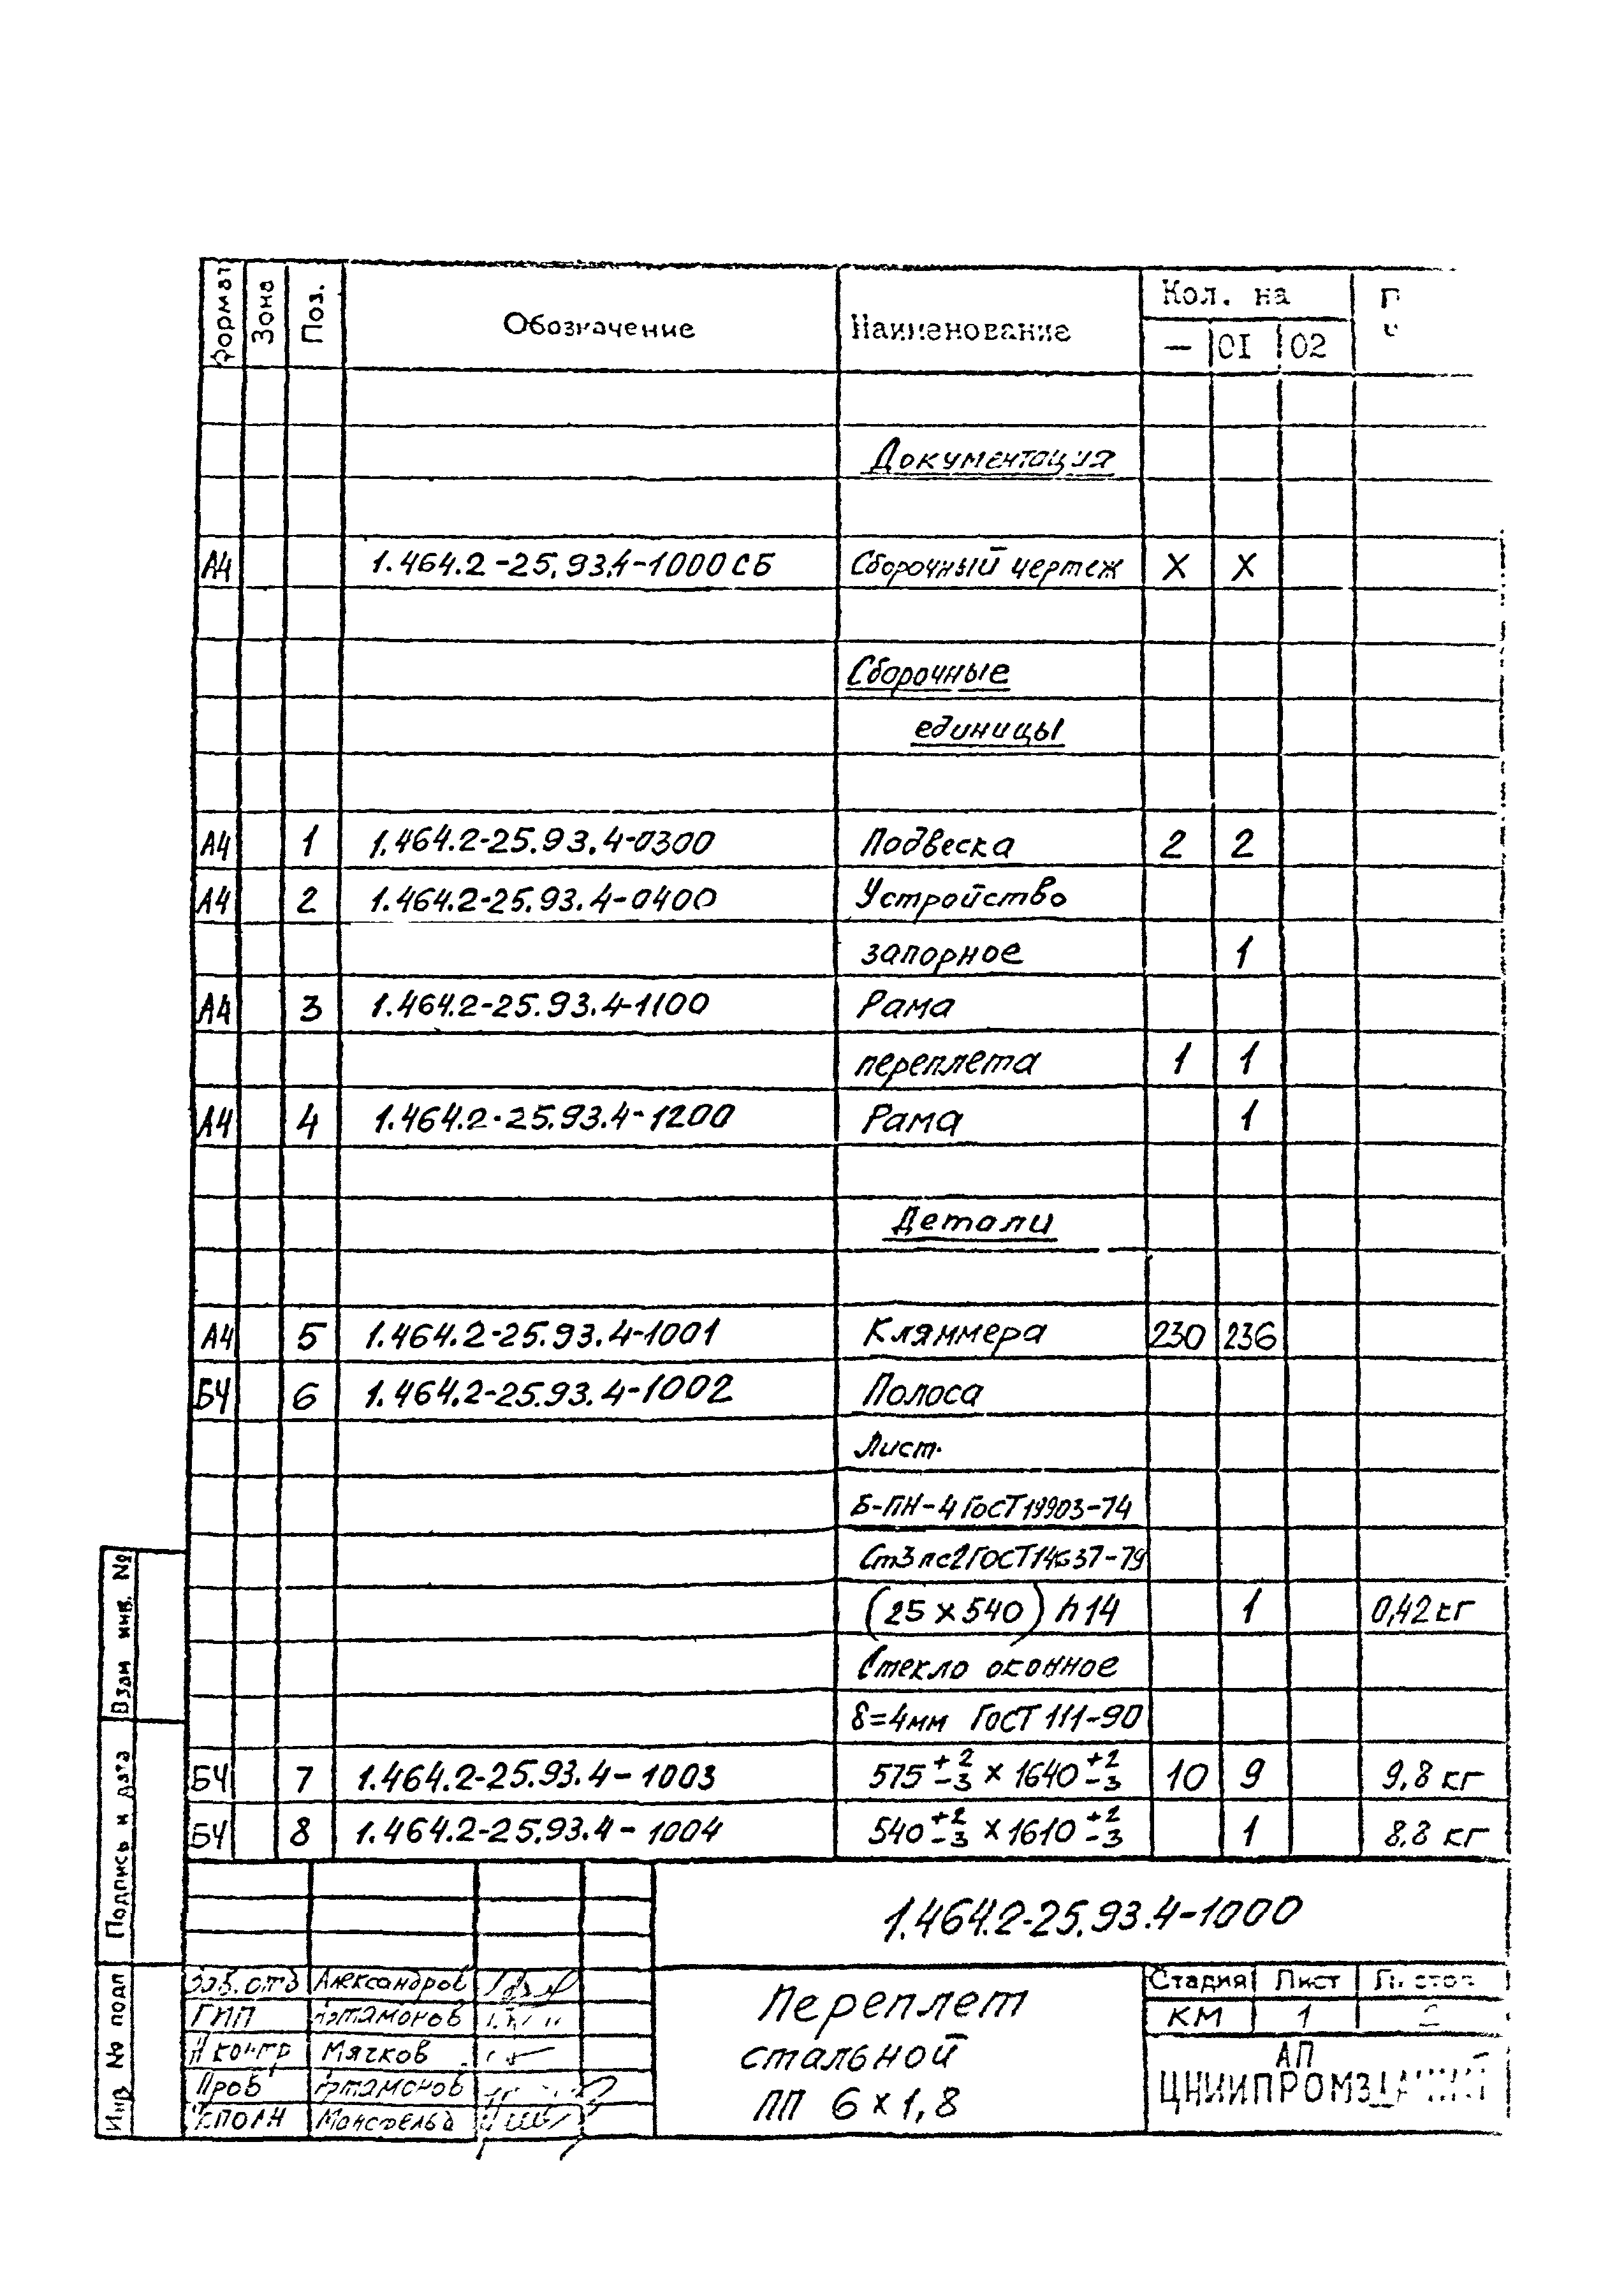 Формат Зона Поз. Обозначение Наименование Кол. на
— 01 02
Документация
А4 1.464.2-25.93.4-1000СБ Сборочный чертеж X X
Сборочные
единицы
А4 1 1.464.2-25.93.4-0300 Подвеска 2 2
А4 2 1.464.2-25.93.4-0400 Устройство
запорное 1
А4 3 1.464.2-25.93.4-1100 Рама
переплета 1 1
А4 4 1.464.2-25.93.4-1200 Рама 1
Детали
А4 5 1.464.2-25.93.4-1001 Кляммера 230 236
БЧ 6 1.464.2-25.93.4-1002 Полоса
Лист
Б-ПН-4 ГОСТ 19903-74
Ст3пс2 ГОСТ 14637-79
(25×540) h14 1 0,42 кг
Стекло оконное
δ=4мм ГОСТ 111-90
БЧ 7 1.464.2-25.93.4-1003 575 +2 -3 × 1640 +2 -3 10 9 9,8 кг
БЧ 8 1.464.2-25.93.4-1004 540 +2 -3 × 1610 +2 -3 1 8,8 кг
Взам инв. №
Подпись и дата
Инв № подл
1.464.2-25.93.4-1000
Зав. отд Александров
ГИП Артамонов
Н контр Мячков
Пров Артамонов
Исполн Мансфельд
Переплет
стальной
ПП 6×1,8
Стадия Лист Листов
КМ 1 2
АП
ЦНИИПРОМЗДАНИЙ